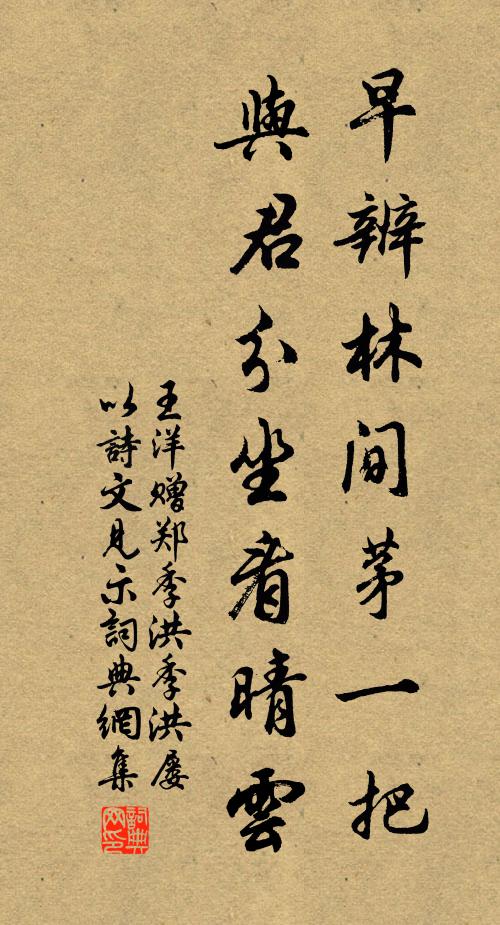 早辨林間茅一把
與君分坐看晴雲
王洋赠郑季洪季洪屡
以詩文見示詞典網集
詞典网印